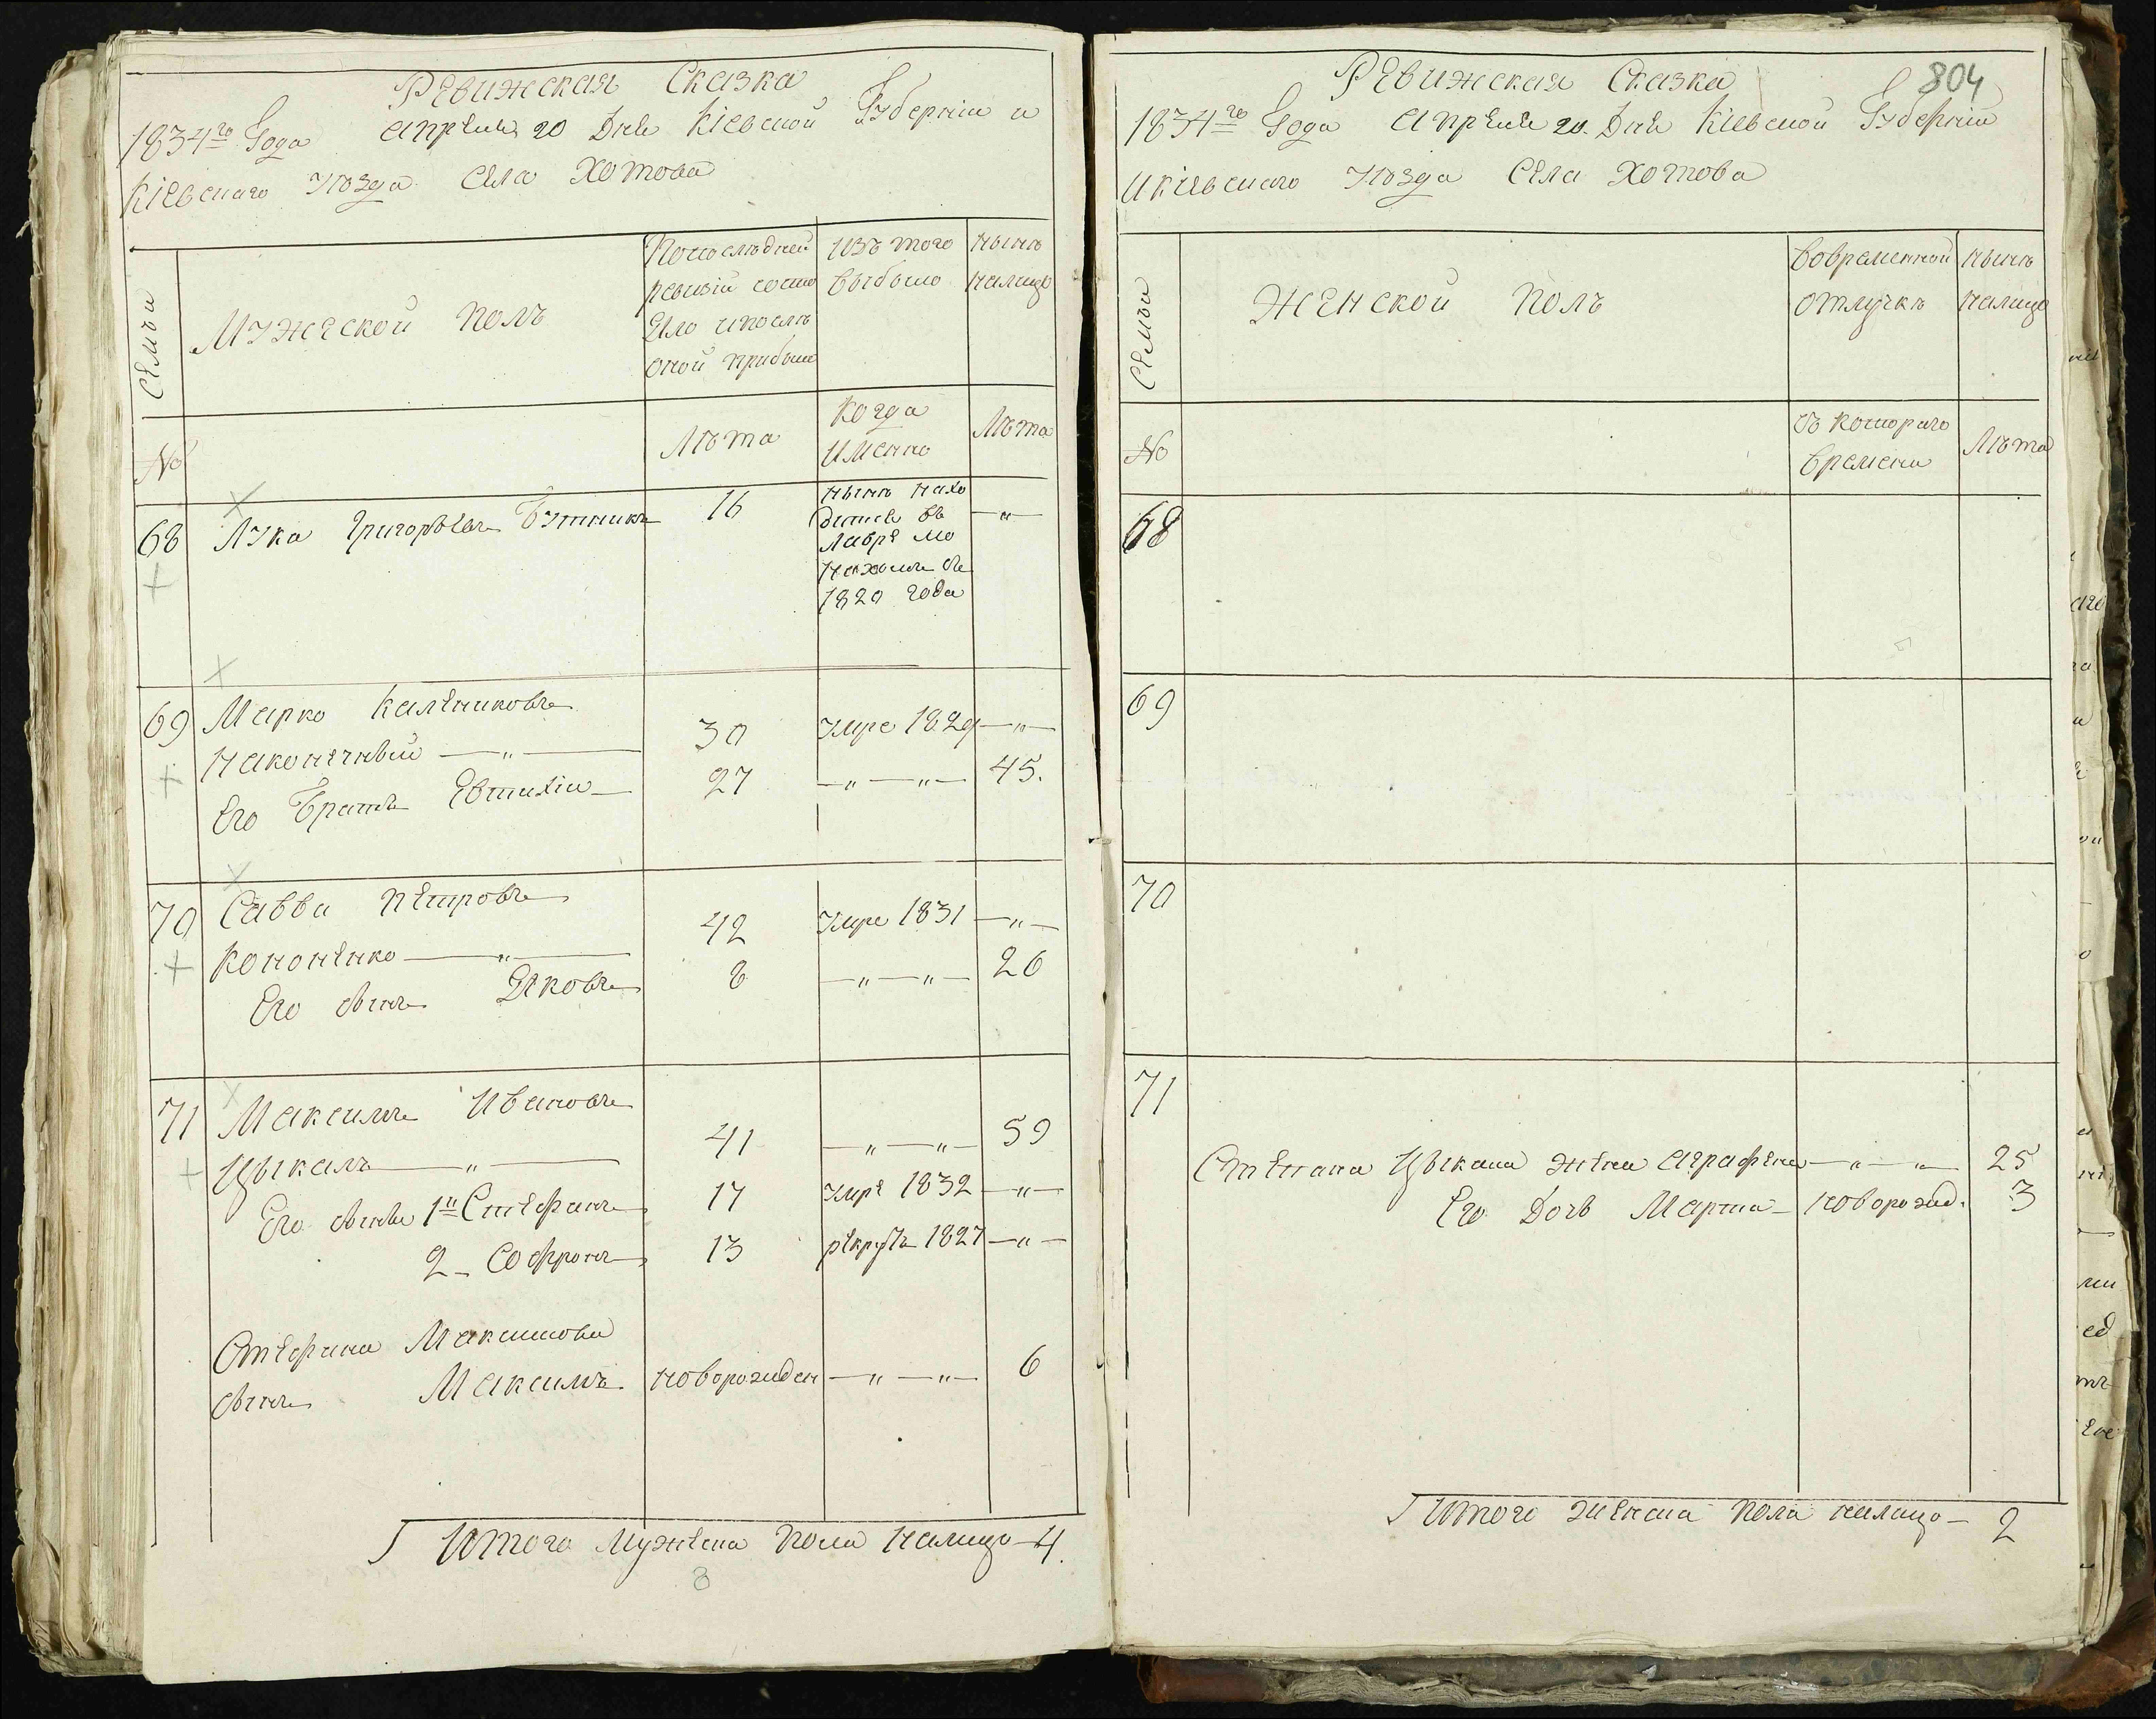 Ревижская Сказка
1834го Года Апреля 20 Дня Кіевской Губерніи и
Кіевскаго Уѣзда Села Хотова
Семьи
Мужеской полъ
Попослѣдней
ревизіи состо
яло ипослѣ
оной прибыло
Изъ того
выбыло
нынѣ
налицо
№
Лѣта
Когда
именно
Лѣта
68 Лука Григорьевъ Бутникъ 16 нынѣ нахо — " —
дится въ
лавре мо
нахомъ съ
1820 года
69 Марко Калениковъ
Наконечный — " — 30 Умре 1829 — " —
Его Братъ Евтихій — 27 — " — " — 45.
70 Савва Петровъ
Кононенко — " — 42 Умре 1831 — " —
Его сынъ Яковъ 8 — " — " — 26
71 Максимъ Ивановъ
Цыкалъ — " — 41 — " — " — 59
Его сыны 1й Стефанъ 17 Умре 1832 — " —
2 – Софронъ 13 рекрутъ 1827 — " —
Стефана Максимова
сынъ Максимъ новорожден — " — " — 6
Итого мужеска пола налицо – 4.
8
804
Ревижская Сказка
1834го Года Апреля 20. Дня Кіевской Губерніи
И Кіевскаго Уѣзда Села Хотова
Семьи
Женской полъ
Вовременной
отлучкѣ
нынѣ
налицо
№
Съ котораго
времени
Лѣта
68
69
70
71
Степана Цыкала жена Аграфена — " — " — 25
Его Дочь Марта – новорожд. 3
Итого женска пола налицо – 2